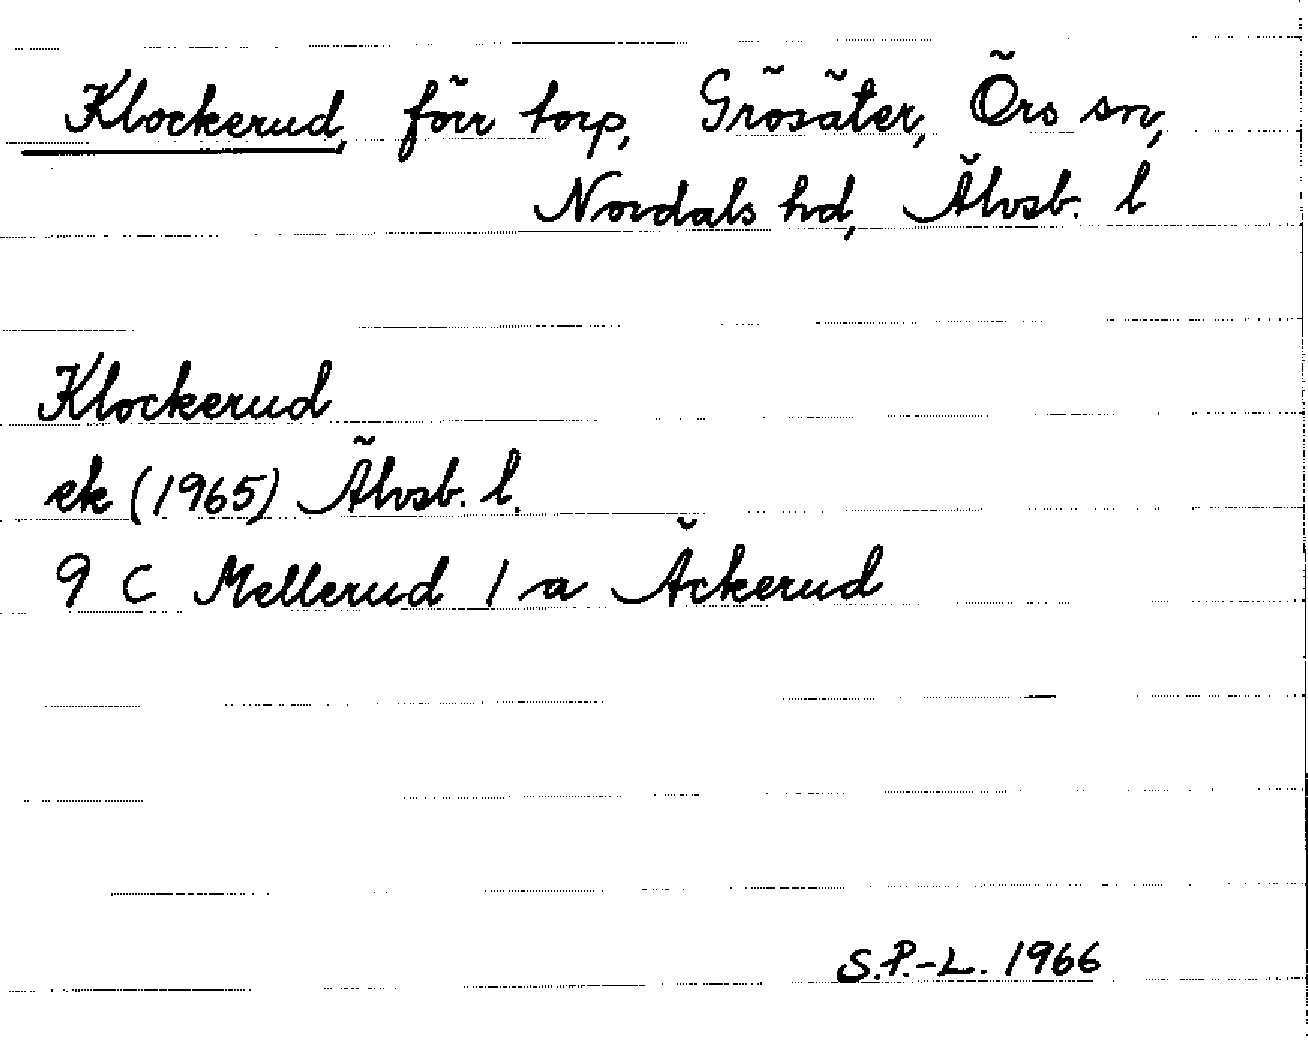 Klockerud, förr torp, Grösäter, Örs sn,
Nordals hd, Älvsb. l
Klockerud
ek (1965) Älvsb. l.
9 C Mellerud 1 a Äckerud
S.P.-L. 1966